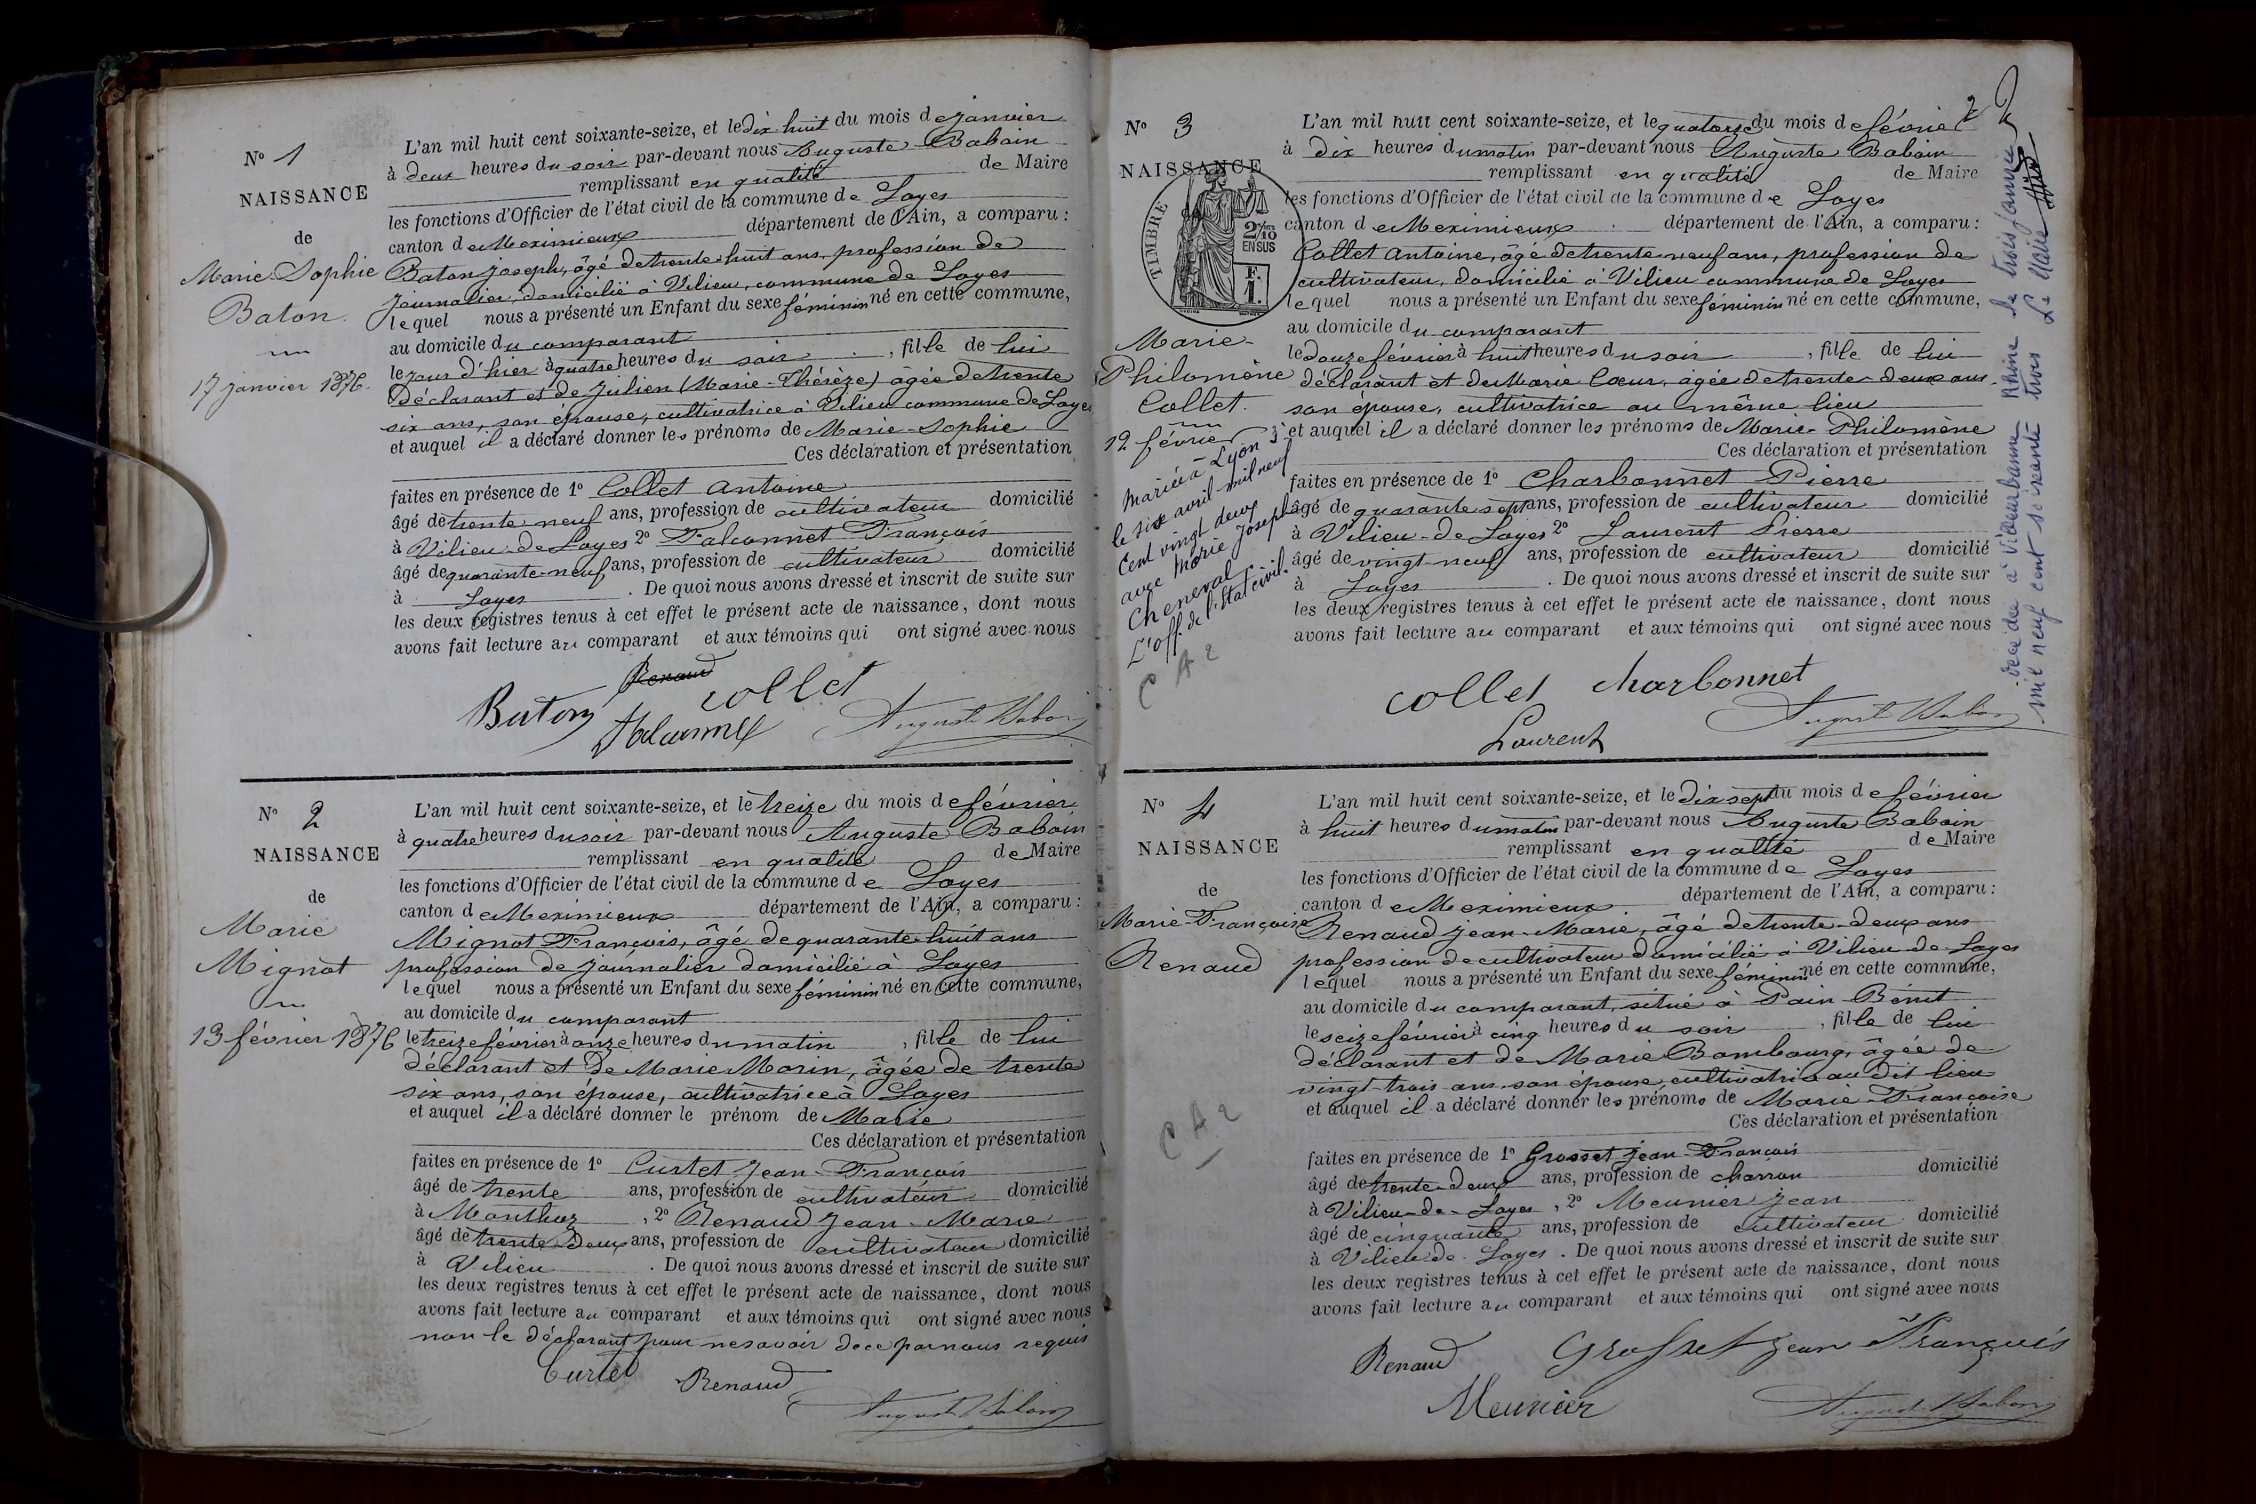 N° 1
NAISSANCE
de
Marie Sophie
Baton
17 janvier 1876.
L'an mil huit cent soixante-seize, et le dix huit du mois de janvier
à deux heures du soir par-devant nous Auguste Baboin
remplissant en qualité de Maire
les fonctions d'Officier de l'état civil de la commune de Loyes
canton de Meximieux département de l'Ain, a comparu :
Baton Joseph, âgé de trente-huit ans, profession de
journalier, domicilié à Vilieu, commune de Loyes
lequel nous a présenté un Enfant du sexe féminin né en cette commune,
au domicile du comparant
le jour d'hier à quatre heures du soir, fille de lui
déclarant et de Julien (Marie-Thérèze) âgée de trente
six ans, son épouse, cultivatrice à Vilieu commune de Loyes
et auquel il a déclaré donner les prénoms de Marie-Sophie
Ces déclaration et présentation
faites en présence de 1° Collet Antoine
âgé de trente neuf ans, profession de cultivateur domicilié
à Vilieu-de-Loyes 2° Falconnet François
âgé de quarante-neuf ans, profession de cultivateur domicilié
à Loyes. De quoi nous avons dressé et inscrit de suite sur
les deux registres tenus à cet effet le présent acte de naissance, dont nous
avons fait lecture au comparant et aux témoins qui ont signé avec nous
Renaud
Baton collet
Falconnet Auguste Baboin
N° 2
NAISSANCE
de
Marie
Mignot
13 février 1876
L'an mil huit cent soixante-seize, et le treize du mois de février
à quatre heures du soir par-devant nous Auguste Baboin
remplissant en qualité de Maire
les fonctions d'Officier de l'état civil de la commune de Loyes
canton de Meximieux département de l'Ain, a comparu :
Mignot François, âgé de quarante-huit ans
profession de journalier domicilié à Loyes
lequel nous a présenté un Enfant du sexe féminin né en cette commune,
au domicile du comparant
le treize février à onze heures du matin, fille de lui
déclarant et de Marie Morin, âgée de trente
six ans, son épouse, cultivatrice à Loyes
et auquel il a déclaré donner le prénom de Marie
Ces déclaration et présentation
faites en présence de 1° Curtet Jean-François
âgé de trente ans, profession de cultivateur domicilié
à Monthoz, 2° Renaud Jean-Marie
âgé de trente-deux ans, profession de cultivateur domicilié
à Vilieu. De quoi nous avons dressé et inscrit de suite sur
les deux registres tenus à cet effet le présent acte de naissance, dont nous
avons fait lecture au comparant et aux témoins qui ont signé avec nous
non le déclarant pour ne savoir de ce par nous requis
Curtet Renaud
Auguste Baboin
2
N° 3
NAISSANCE
TIMBRE
2/10
EN SUS
F.
1.
Marie-
Philomène
Collet.
12 février
Mariée à Lyon 3e
le six avril mil neuf
cent vingt deux
avec Marie Joseph
Cheneval.
L'off. de l'état civil.
C A 2
L'an mil huit cent soixante-seize, et le quatorze du mois de février
à dix heures du matin par-devant nous Auguste Baboin
remplissant en qualité de Maire
les fonctions d'Officier de l'état civil de la commune de Loyes
canton de Meximieux département de l'Ain, a comparu :
Collet Antoine, âgé de trente-neuf ans, profession de
cultivateur, domicilié à Vilieu commune de Loyes
lequel nous a présenté un Enfant du sexe féminin né en cette commune,
au domicile du comparant
le douze février à huit heures du soir, fille de lui
déclarant et de Marie Cœur, âgée de trente-deux ans.
son épouse, cultivatrice au même lieu
et auquel il a déclaré donner les prénoms de Marie-Philomène
Ces déclaration et présentation
faites en présence de 1° Charbonnet Pierre
âgé de quarante sept ans, profession de cultivateur domicilié
à Vilieu-de-Loyes 2° Laurent Pierre
âgé de vingt-neuf ans, profession de cultivateur domicilié
à Loyes. De quoi nous avons dressé et inscrit de suite sur
les deux registres tenus à cet effet le présent acte de naissance, dont nous
avons fait lecture au comparant et aux témoins qui ont signé avec nous
collet charbonnet
Laurent Auguste Baboin
décédée à Villeurbanne Rhône le trois janvier
mil neuf cent soixante trois Le Maire
N° 4
NAISSANCE
de
Marie-Françoise
Renaud
C A 2
L'an mil huit cent soixante-seize, et le dix sept du mois de février
à huit heures du matin par-devant nous Auguste Baboin
remplissant en qualité de Maire
les fonctions d'Officier de l'état civil de la commune de Loyes
canton de Meximieux. département de l'Ain, a comparu :
Renaud Jean-Marie, âgé de trente-deux ans
profession de cultivateur domicilié à Vilieu-de-Loyes
lequel nous a présenté un Enfant du sexe féminin né en cette commune,
au domicile du comparant, situé à Pain-Bénit
le seize février à cinq heures du soir, fille de lui
déclarant et de Marie Bombourg, âgée de
vingt-trois ans son épouse, cultivatrice au dit lieu
et auquel il a déclaré donner les prénoms de Marie-Françoise
Ces déclaration et présentation
faites en présence de 1° Grosset Jean-François
âgé de trente-deux ans, profession de charron domicilié
à Vilieu-de-Loyes, 2° Meunier Jean
âgé de cinquante ans, profession de cultivateur domicilié
à Vilieu de Loyes. De quoi nous avons dressé et inscrit de suite sur
les deux registres tenus à cet effet le présent acte de naissance, dont nous
avons fait lecture au comparant et aux témoins qui ont signé avec nous
Renaud Grosset jean François
Meunier Auguste Baboin